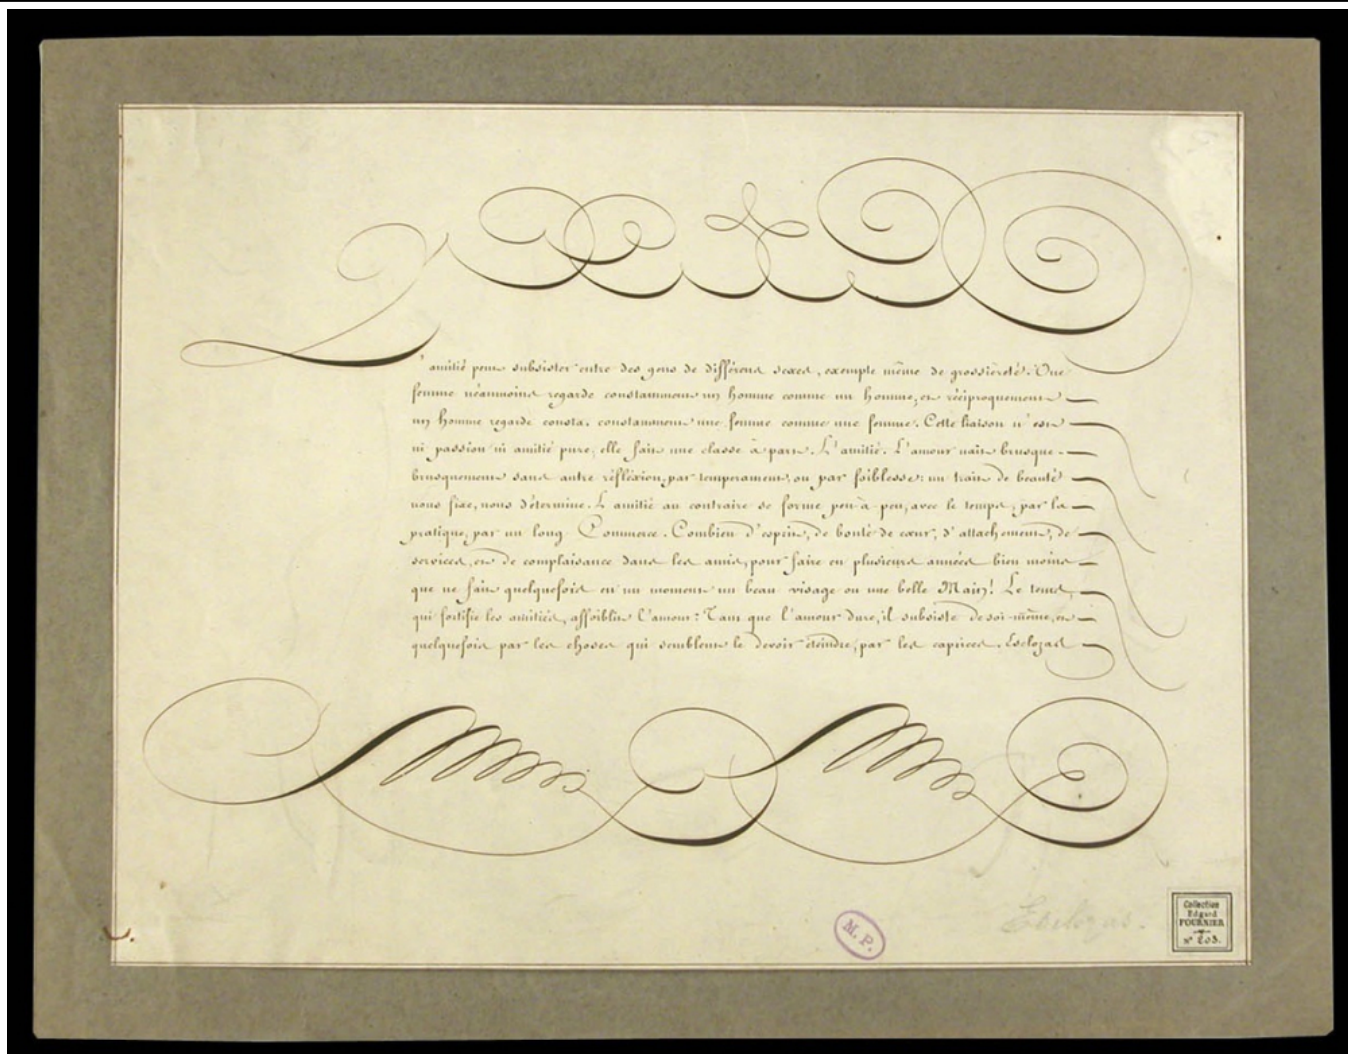 L'amitié peut subsister entre des gens de différens sexes, exempte même de grossièreté. Une
femme néanmoins regarde constamment un homme comme un homme, et réciproquement
un homme regarde consta. constamment une femme comme une femme. Cette liaison n'est
ni passion ni amitié pure; elle fait une classe à part. L'amitié. L'amour nait brusque-
brusquement sans autre réfléxion, par temperament, ou par foiblesse: un trait de beauté
nous fixe, nous détermine. L'amitié au contraire se forme peu-à-peu, avec le temps, par la
pratique, par un long Commerce. Combien d'esprit, de bonté de cœur, d'attachement, de
services, et de complaisance dans les amis, pour faire en plusieurs années bien moins
que ne fait quelquefois en un moment un beau visage ou une belle Main! Le tems,
qui fortifie les amitiés, affoiblit l'amour: Tant que l'amour dure, il subsiste de soi-même, et
quelquefois par les choses qui semblent le devoir éteindre, par les caprices. Esclozas
Esclozas.
M.P.
Collection
Edgard
FOURNIER
n° 203.